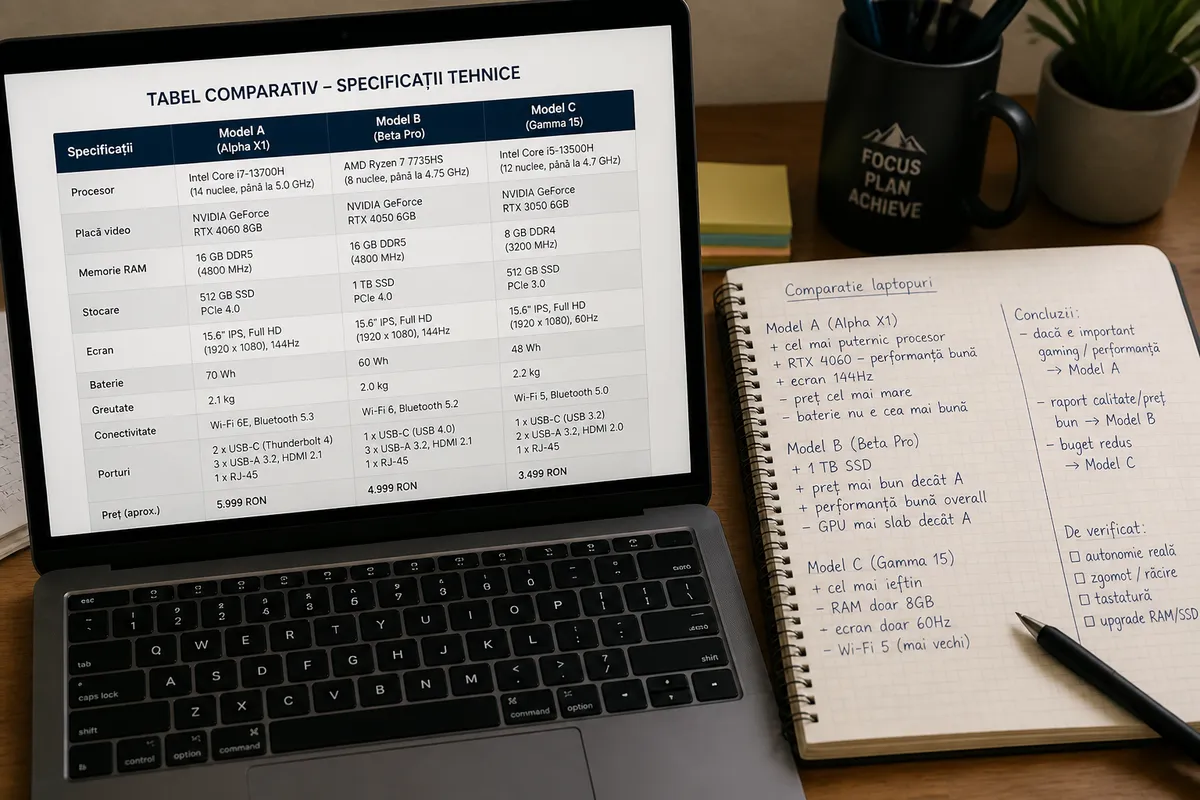 TABEL COMPARATIV – SPECIFICAȚII TEHNICE
Specificații
Model A
(Alpha X1)
Model B
(Beta Pro)
Model C
(Gamma 15)
Procesor
Intel Core i7-13700H
(14 nuclee, până la 5.0 GHz)
AMD Ryzen 7 7735HS
(8 nuclee, până la 4.75 GHz)
Intel Core i5-13500H
(12 nuclee, până la 4.7 GHz)
Placă video
NVIDIA GeForce
RTX 4060 8GB
NVIDIA GeForce
RTX 4050 6GB
NVIDIA GeForce
RTX 3050 6GB
Memorie RAM
16 GB DDR5
(4800 MHz)
16 GB DDR5
(4800 MHz)
8 GB DDR4
(3200 MHz)
Stocare
512 GB SSD
PCIe 4.0
1 TB SSD
PCIe 4.0
512 GB SSD
PCIe 3.0
Ecran
15.6" IPS, Full HD
(1920 x 1080), 144Hz
15.6" IPS, Full HD
(1920 x 1080), 144Hz
15.6" IPS, Full HD
(1920 x 1080), 60Hz
Baterie
70 Wh
60 Wh
48 Wh
Greutate
2.1 kg
2.0 kg
2.2 kg
Conectivitate
Wi-Fi 6E, Bluetooth 5.3
Wi-Fi 6, Bluetooth 5.2
Wi-Fi 5, Bluetooth 5.0
Porturi
2 x USB-C (Thunderbolt 4)
3 x USB-A 3.2, HDMI 2.1
1 x RJ-45
1 x USB-C (USB 4.0)
3 x USB-A 3.2, HDMI 2.1
1 x RJ-45
1 x USB-C (USB 3.2)
2 x USB-A 3.2, HDMI 2.0
1 x RJ-45
Preț (aprox.)
5.999 RON
4.999 RON
3.499 RON
FOCUS
PLAN
ACHIEVE
Comparatie laptopuri
Model A (Alpha X1)
+ cel mai puternic procesor
+ RTX 4060 – performanță bună
+ ecran 144Hz
– preț cel mai mare
– baterie nu e cea mai bună
Model B (Beta Pro)
+ 1 TB SSD
+ preț mai bun decât A
+ performanță bună overall
– GPU mai slab decât A
Model C (Gamma 15)
+ cel mai ieftin
– RAM doar 8GB
– ecran doar 60Hz
– Wi-Fi 5 (mai vechi)
Concluzii:
– dacă e important
gaming / performanță
→ Model A
– raport calitate/preț
bun → Model B
– buget redus
→ Model C
De verificat:
☐ autonomie reală
☐ zgomot / răcire
☐ tastatură
☐ upgrade RAM/SSD
esc
Q W E R T Y U I O P
tab
A S D F G H J K L
caps lock
shift
Z X C V B N M
shift
control
option
command
command
option